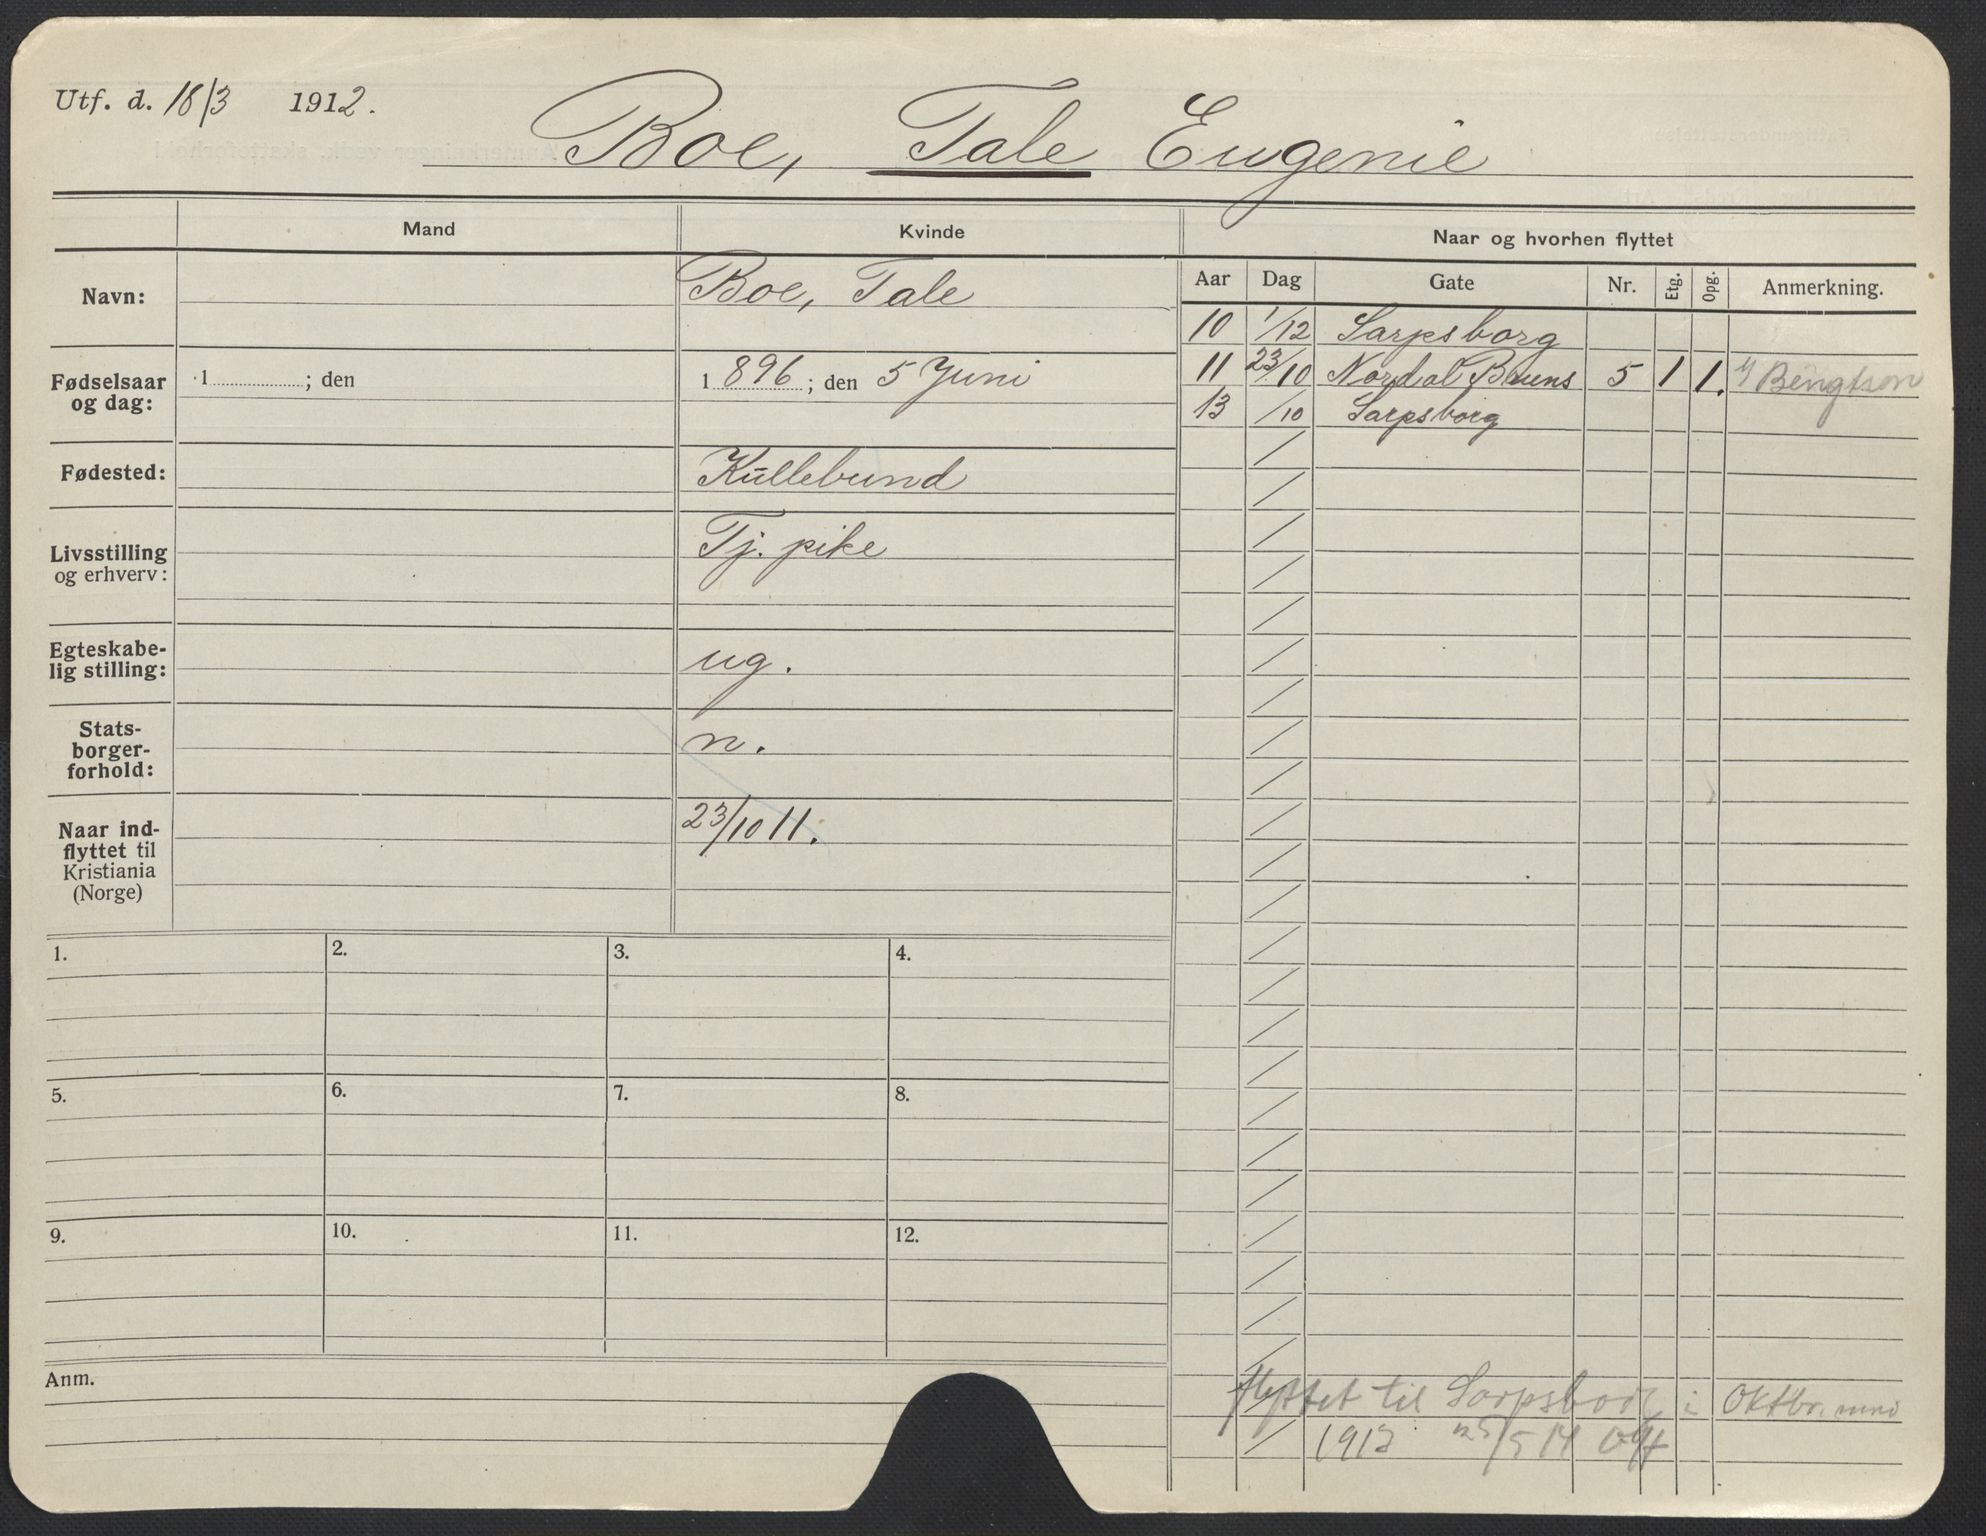 Utf. d. 18/3 1912.
Boe, Tale Eugenie
Mand
Kvinde
Naar og hvorhen flyttet
Aar Dag Gate Nr. Etg. Opg. Anmerkning.
Navn:
Boe, Tale
10 1/12 Sarpsborg
Fødselsaar
og dag:
1 ; den
1 896 ; den 5 Juni
11 23/10 Nordal Bruns 5 1 1. Bengtson
13 /10 Sarpsborg
Fødested:
Kullebund
Livsstilling
og erhverv:
Tj. pike
Egteskabe-
lig stilling:
ug.
Stats-
borger-
forhold:
n.
Naar ind-
flyttet til
Kristiania
(Norge)
23/10 11.
1. 2. 3. 4.
5. 6. 7. 8.
9. 10. 11. 12.
Anm.
flyttet til Sarpsborg i Oktbr.
1913 25/5 14